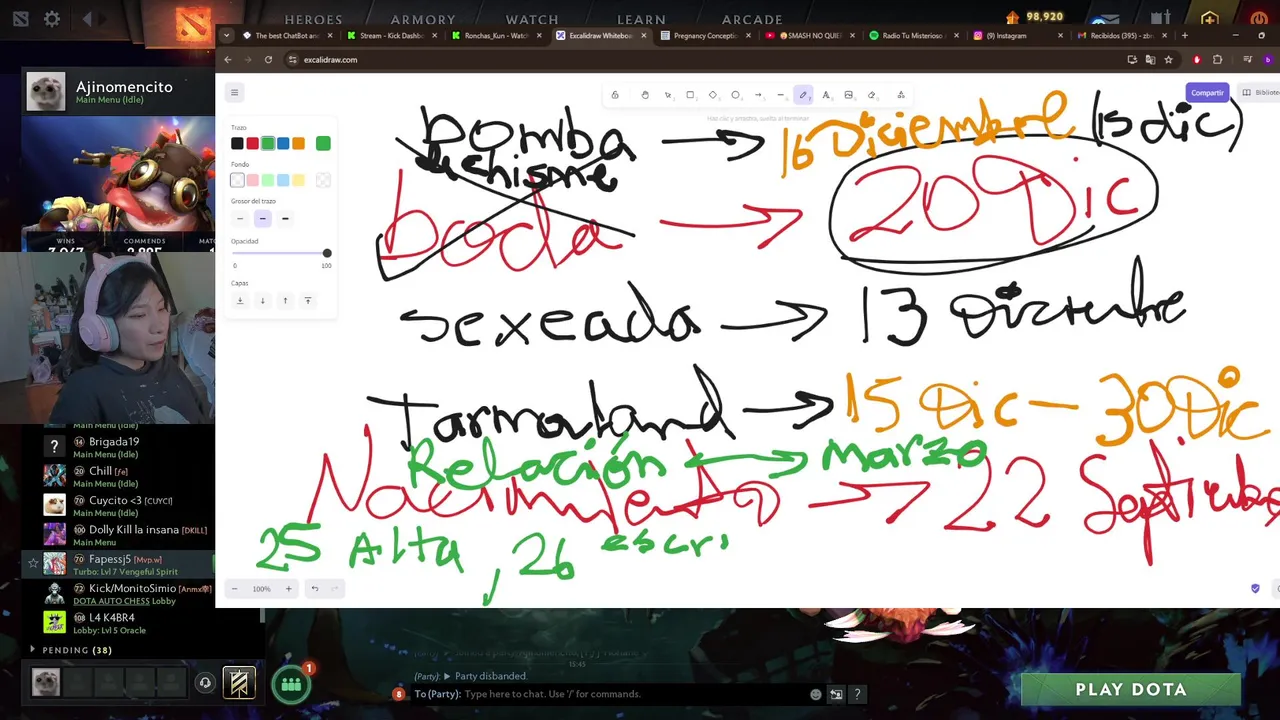 HEROES ARMORY WATCH LEARN ARCADE
98,920
Ajinomencito
Main Menu (Idle)
WINS COMMENDS
The best ChatBot an
Stream - Kick Dashb
Ronchas_Kun - Watch
Excalidraw Whiteboa
Pregnancy Conceptio
SMASH NO QUIE
Radio Tu Misterioso
(9) Instagram
Recibidos (395) - zb
excalidraw.com
Haz clic y arrastra, suelta al terminar
Compartir
Bibliote
Trazo
Fondo
Grosor del trazo
Opacidad
0 100
Capas
bomba → 16 Diciembre (15 dic)
chisme
boda → 20 Dic
sexeada → 13 Diciembre
Tarmaland → 15 Dic - 30 Dic
Relación → marzo
Nacimiento → 22 Septiembre
25 Alta, 26 escri
100%
Main Menu (Idle)
14 Brigada19
Main Menu (Idle)
20 Chill [ƒe]
Main Menu (Idle)
70 Cuycito <3 [CUYC!]
Main Menu (Idle)
100 Dolly Kill la insana [DKILL]
Main Menu
70 Fapessj5 [Mvp.w]
Turbo: Lvl 7 Vengeful Spirit
72 Kick/MonitoSimio
DOTA AUTO CHESS Lobby
108 L4 K4BR4
Lobby: Lvl 5 Oracle
PENDING (38)
1
15:45
(Party): Party disbanded.
8 To (Party): Type here to chat. Use '/' for commands.
?
PLAY DOTA